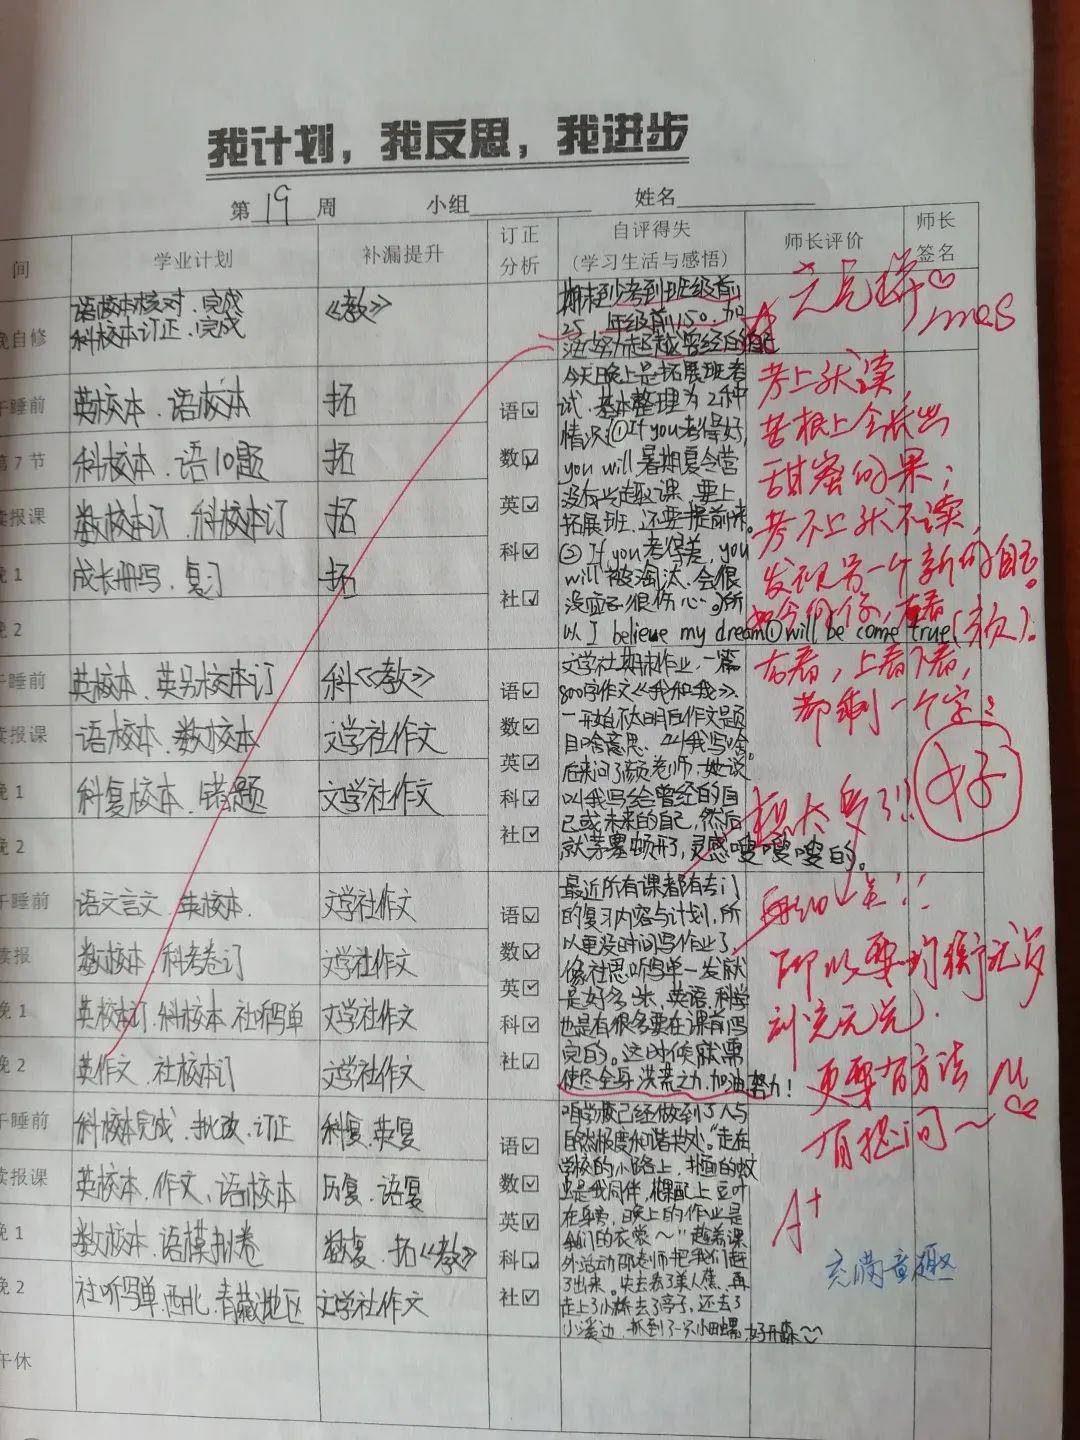 我计划，我反思，我进步
第 19 周 小组 姓名
间 学业计划 补漏提升 订正分析 自评得失（学习生活与感悟） 师长评价 师长签名
晚自修 语校本核对、完成
科校本订正、完成
《教》
期末到考到班级前
25 年级前150、加
油努力超越曾经的自己
午睡前 英校本、语校本 拓
第7节 科校本、语10题 拓
读报课 数校本订、科校本订 拓
晚1 成长册写、复习 拓
晚2
语☑
数☑
英☑
科☑
社☑
今天晚上是拓展班考
试、基本整理为2种
情况：①If you考得好，
you will 暑期夏令营
没有兴趣课、要上
拓展班、还要提前来。
②If you 考得差，you
will 被淘汰、会很
没面子很伤心。所
以 I believe my dream① will be come true
考上就读，
苦根上会长出
甜蜜的果；
考不上就不读，
发现另一个新的自己。
如今的你，左看
右看，上看下看，
都剩一个字：
好
午睡前 英校本、英另校本订 科《教》
读报课 语校本、数校本 文学社作文
晚1 科复校本、错题 文学社作文
晚2
语☑
数☑
英☑
科☑
社☑
文学社期末作业，一篇
800字作文《我和我》、
一开始不太明白作文是题
目啥意思、叫我写啥。
后来问了颜老师，她说
叫我写给曾经的自
己或未来的自己，然后
就茅塞顿开，灵感嗖嗖嗖的。
午睡前 语文言文、英校本、 文学社作文
读报 数校本、科考卷订 文学社作文
晚1 英校本订、科校本、社听写单 文学社作文
晚2 英作文、社校本订 文学社作文
语☑
数☑
英☑
科☑
社☑
最近所有课都有专门
的复习内容与计划，所
以更没时间写作业了，
像社思听写单一发就
是好多张、英语、科学
也是有很多要在课前写
完的。这时候就需
使尽全身洪荒之力、加油努力！
所以要均衡
更要有方法
有提问～
午睡前 科校本完成、批改、订正 科复、英复
读报课 英校本、作文、语校本 历复、语复
晚1 数校本、语模拟卷 数复、拓《教》
晚2 社听写单、西北、青藏地区 文学社作文
语☑
数☑
英☑
科☑
社☑
咱学校已经做到了人与
自然极度和谐共处。“走在
学校的小路上，扑面的蚊
虫是我同伴，
在身旁，晚上的作业是
我们的衣裳～”趁着课
外活动邵老师把我们赶
了出来。先去看了美人蕉，再
走上了小桥去了亭子，还去了
小溪边，抓到了一只小田螺，好开森～
A+
充满童趣
午休